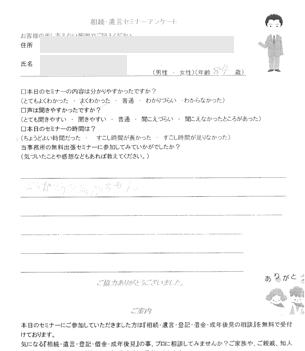 相続・遺言セミナーアンケート
住所
氏名
(男性 ・ 女性)(年齢 歳)
□本日のセミナーの内容は分かりやすかったですか？
(とてもよくわかった ・ よくわかった ・ 普通 ・ わかりづらい ・わからなかった)
□声は聞きやすかったですか？
(とても聞きやすい ・ 聞きやすい ・ 普通 ・ 聞こえづらい ・ 聞こえなかったところがあった)
□本日のセミナーの時間は？
(ちょうどよい時間だった ・ すこし時間が長かった ・ すこし時間が足りなかった)
当事務所の無料出張セミナーに参加してみていかがでしたか？
(気づいたことや感想などもあれば教えてください。)
ご協力ありがとうございました。
ありがとう
ご案内
本日のセミナーにご参加していただきました方は『相続・遺言・登記・借金・成年後見の相談』を無料で受付
けております。
気になる『相続・遺言・登記・借金・成年後見』の事、プロに相談してみませんか？ご家族や、ご親戚、知人